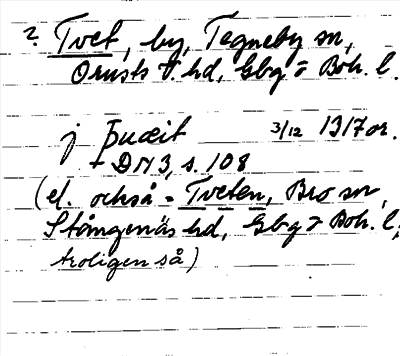 ? Tvet, by, Tegneby sn,
Orusts V. hd, Gbg o Boh. l.
j þuæit 3/12 1317 or.
DN 3, s. 108
(el. också = Tveten, Bro sn,
Stångenäs hd, Gbg o Boh. l;
troligen så)